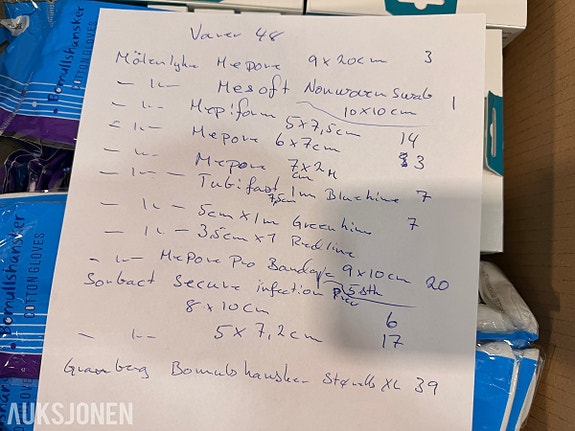 Varer 48
Mölenlyke Mepore 9x20cm 3
- 1L- Mesoft Nonwoven Swab 1
10x10cm
- 1L- Mepiform 5x7,5cm 14
- 1L- Mepore 6x7cm 3
- 1L- Mepore 7x2M
cm
- 1L- Tubifast 1m Blueline 7
7,5cm
- 1L- 5cm x 1m Greenline 7
- 1L- 3,5cm x 1 Redline
- 1L- Mepore Pro Bandage 9x10cm 20
5 Stk
Sorbact Secure infection
8x10cm 6
- 1L- 5x7,2cm 17
Granberg Bomulshansker Størrelse XL 39
Bomullshansker
COTTON GLOVES
Bomullshansker
COTTON GLOVES
AUKSJONEN